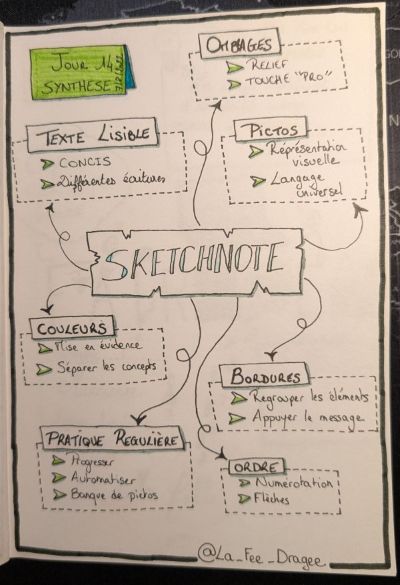 JOUR 14
SYNTHESE
OMBRAGES
RELIEF
TOUCHE "PRO"
TEXTE LISIBLE
CONCIS
Différentes écritures
PICTOS
Répresentation
visuelle
Langage
universel
SKETCHNOTE
COULEURS
Mise en évidence
Séparer les concepts
BORDURES
Regrouper les éléments
Appuyer le message
PRATIQUE REGULIÈRE
Progresser
Automatiser
Banque de pictos
ORDRE
Numérotation
Flèches
@La_Fee_Dragee